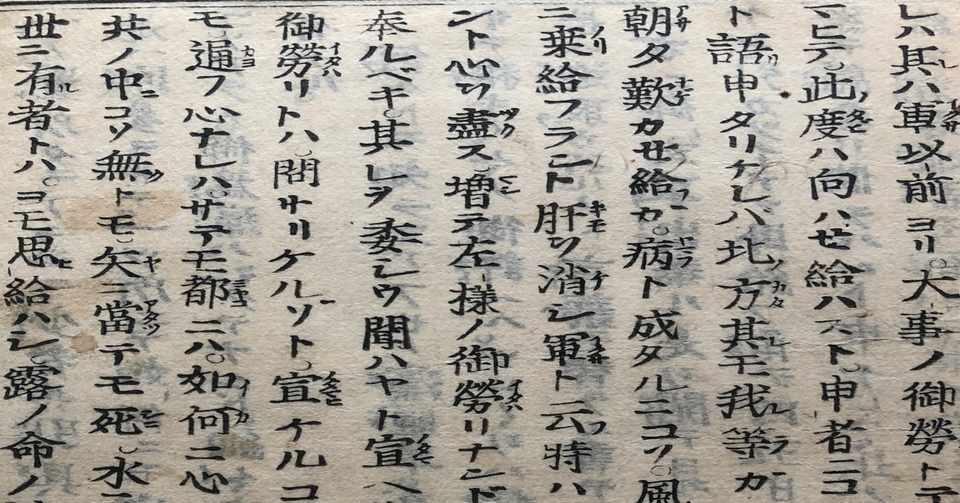 レハ其ハ軍以前ヨリ。大事ノ御勞トテ
マヒテ。此度ハ向ハせ給ハスト。申者ニコ
ト語申タリケレバ北方其モ我等カ
朝夕歎カせ給カ。病ト成タルニコソ。風
ニ乗給フラント肝ヲ消シ軍ト云時ハ
ント心ヲ盡ス。増テ左様ノ御勞リナンド
奉ルベキ。其レヲ委シウ聞ハヤト宣ヘ
御勞リトハ。問サリケルソト。宣ケルコ
モ。通フ心ナレハ。サテモ都ニハ。如何ニ心
共ノ中コソ無トモ。矢ニ當テモ死。水ニ
世ニ有者トハ。ヨモ思給ハシ。露ノ命ノ